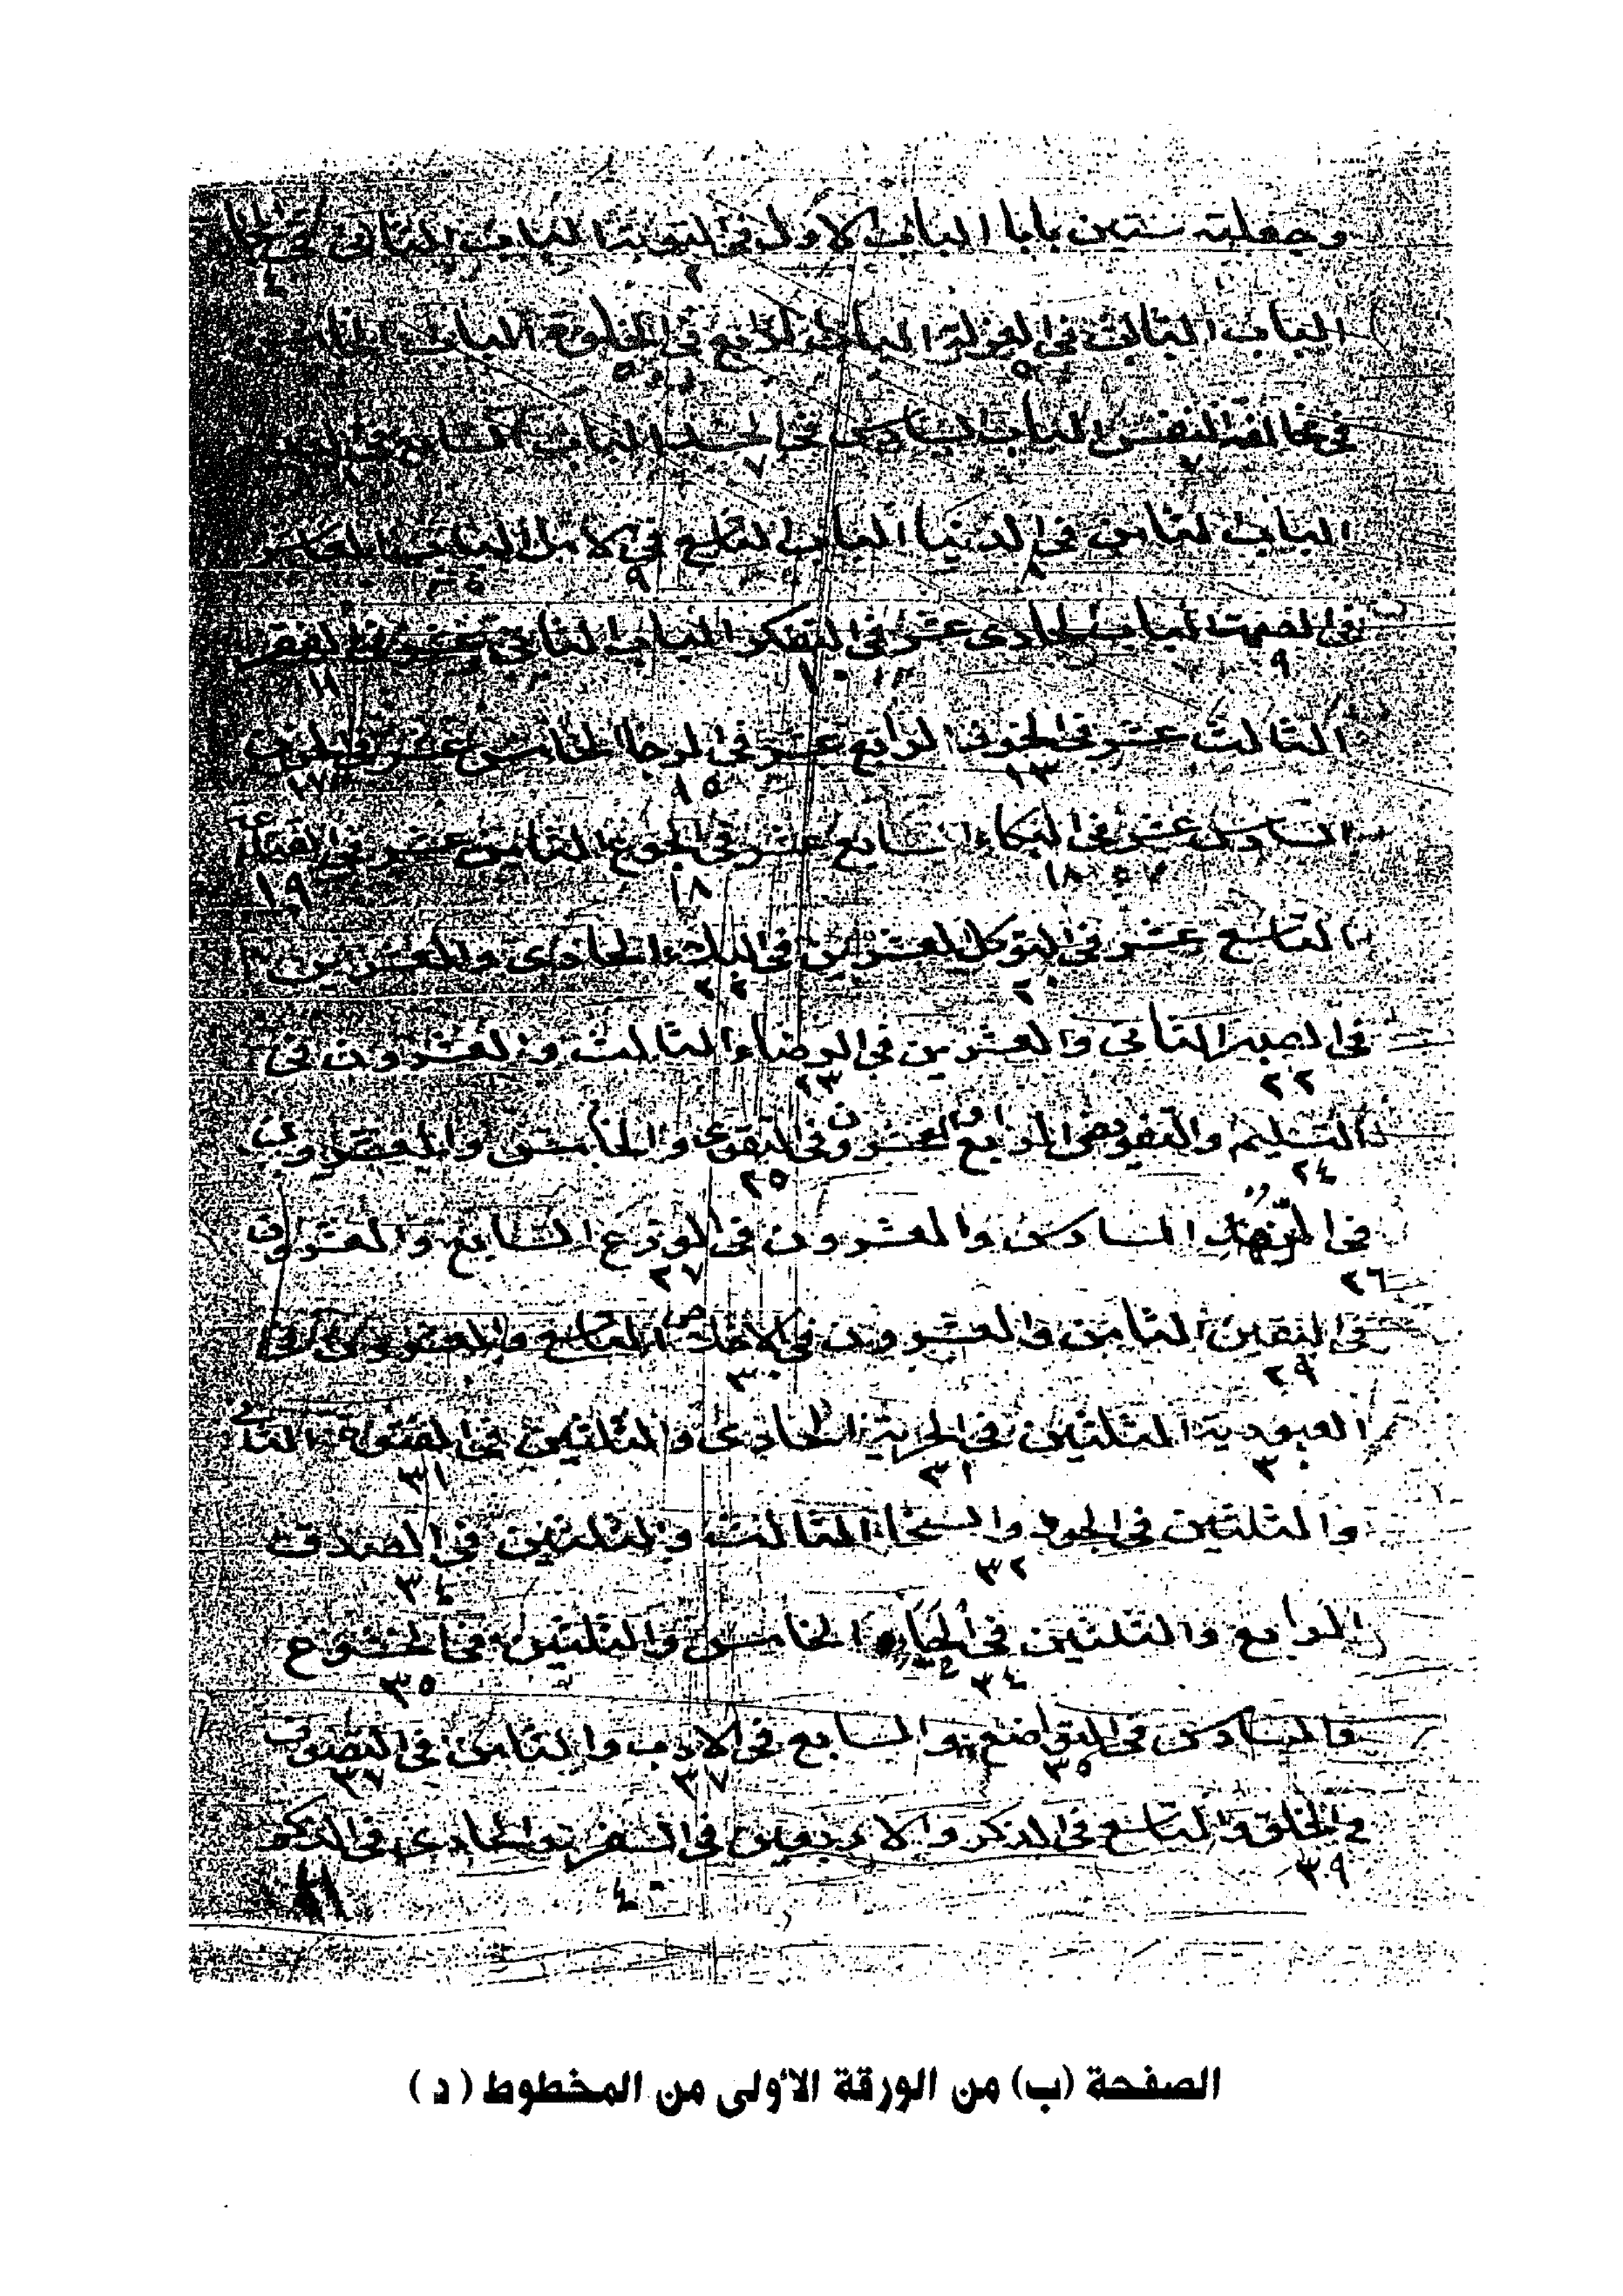 وجعلته ستين بابا الباب الاول في التوبة الباب الثاني في
٢ ٤
الباب الثالث في العزلة الباب الرابع في الخلوة الباب
٥ ٥
في مخالفة النفس الباب السادس في الحسد الباب السابع في
٧ ٧ ٨
الباب الثامن في الدنيا الباب التاسع في الامل الباب العاشر
٨ ٩
في الصمت الباب الحادى عشر في التفكر الباب الثاني عشر في الفقر
٩ ١٠ ١١
الثالث عشر في الخوف الرابع عشر في الرجا الخامس عشر في الحزن
١٣ ١٥ ١٧
السادس عشر في البكاء السابع عشر في الجوع الثامن عشر في القناعة
١٨ ١٨ ١٩
التاسع عشر في التوكل العشرين في البلاء الحادى والعشرين
٢٠ ٢٢
في الصبر الثاني والعشرين في الرضا والثالث والعشرون في
٢٢ ٢٣
التسليم والتفويض الرابع والعشرون في التقوى والخامس والعشرون
٢٤ ٢٥
في الزهد السادس والعشرون في الورع السابع والعشرون
٢٦ ٢٧
في اليقين الثامن والعشرون في الاخلاص التاسع والعشرون في
٢٩ ٣٠
العبودية الثلثين في الحرية الحادى والثلثين في الفتوة الثاني
٣٠ ٣١ ٣١
والثلثين في الجود والسخا الثالث والثلثين في الصدق
٣٢ ٣٤
الرابع والثلثين في الحياء الخامس والثلثين في الخشوع
٣٤ ٣٥
والسادس في التواضع والسابع في الادب والثامن في التصوف
٣٥ ٣٧ ٣٧
في الخلق والتاسع في الذكر والاربعين في السفر والحادى في الذكر
٣٩ ٤٠ ٤١
الصفحة (ب) من الورقة الأولى من المخطوط (د)